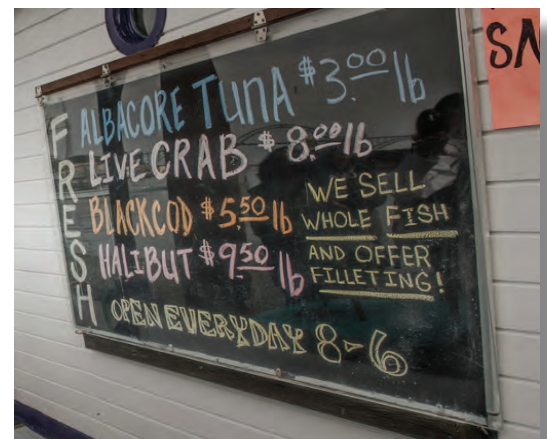 FRESH
ALBACORE TUNA $3.00 lb
LIVE CRAB $8.00 lb
BLACKCOD $5.50 lb
HALIBUT $9.50 lb
WE SELL
WHOLE FISH
AND OFFER
FILLETING!
OPEN EVERYDAY 8-6